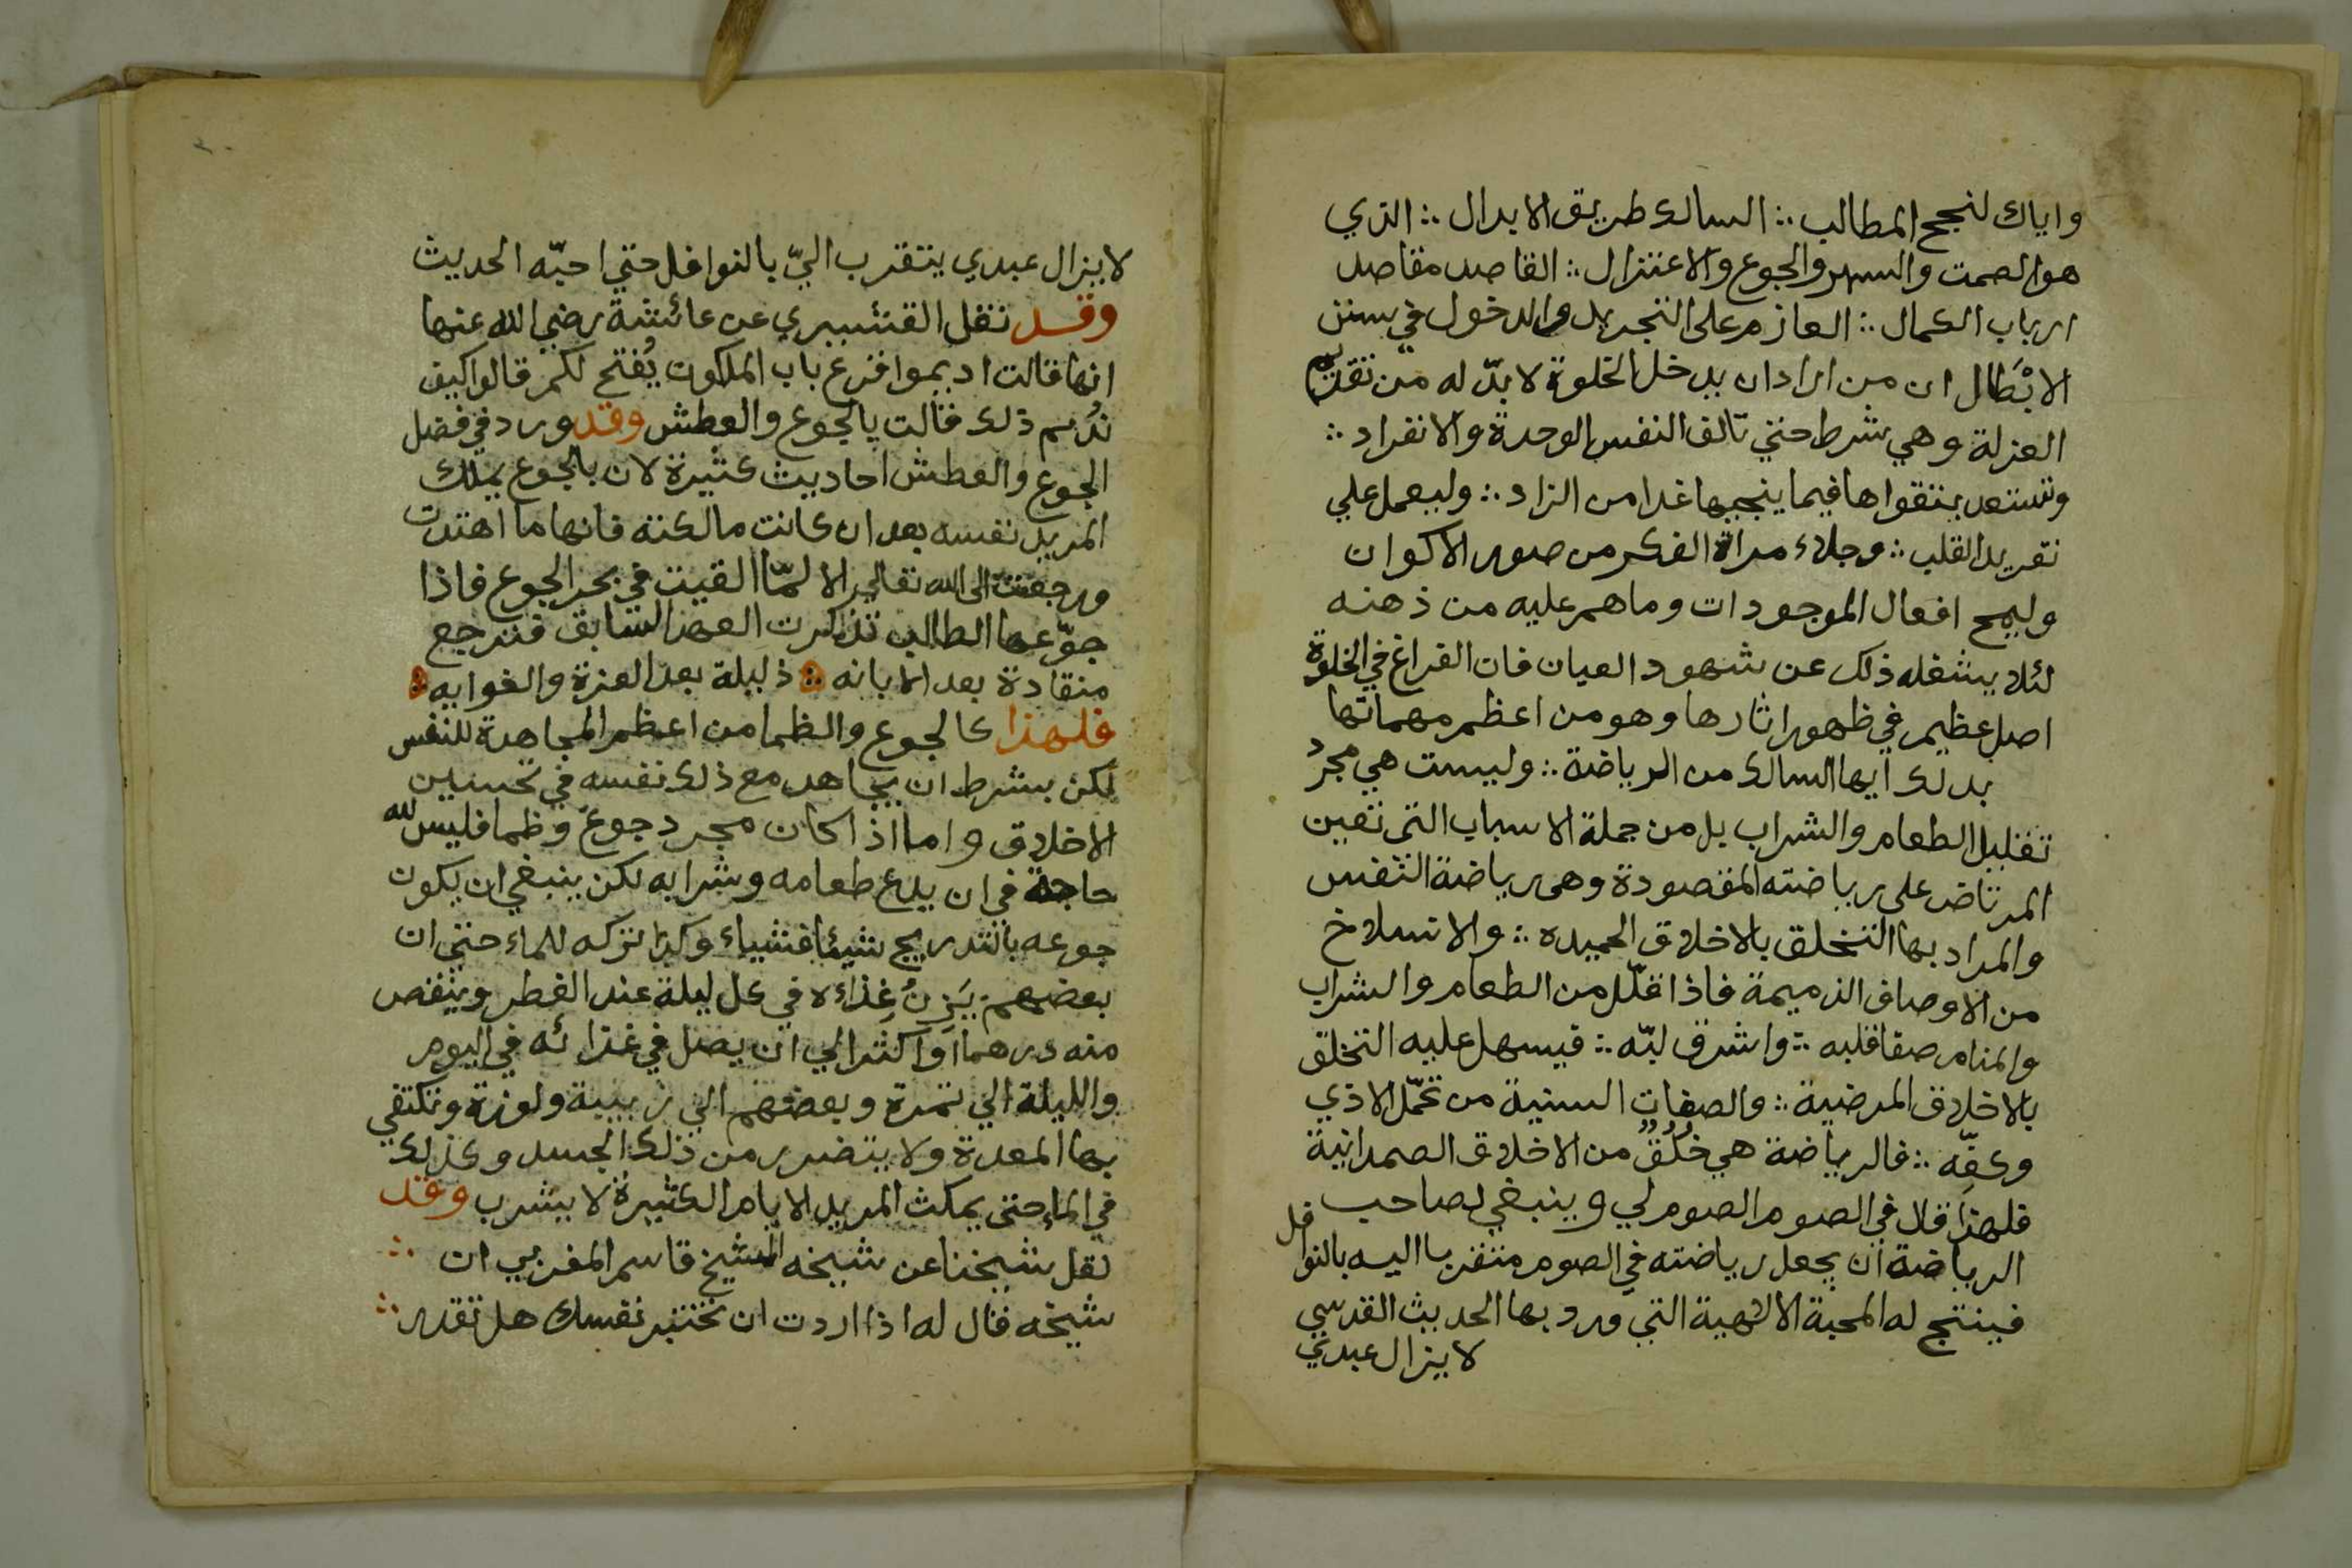 واياك لنجح المطالب ∴ السالك طريق الابدال ∴ الذي
هو الصمت والسهر والجوع والاعتزال ∴ القاصد مقاصد
ارباب الكمال ∴ العازم على التجريد والدخول في سنن
الابْطَال ان من اراد ان يدخل الخلوة لا بدّ له من تقديم
العزلة وهي شرط حتي تالف النفس الوحدة والانفراد ∴
وتستعد بتقواها فيما ينجيها غدا من الزاد ∴ وليعمل علي
تفريد القلب ∴ وجلاء مراة الفكر من صور الاكوان
وليمح افعال الموجودات وما هم عليه من ذهنه
لئلا يشغله ذلك عن شهود العيان فان الفراغ في الخلوة
اصل عظيم في ظهور اثارها وهو من اعظم مهماتها
بد لك ايها السالك من الرياضة ∴ وليست هي مجرد
تقليل الطعام والشراب بل من جملة الاسباب التى تعين
المرتاض على رياضته المقصودة وهى رياضة النفس
والمراد بها التخلق بالاخلاق الحميده ∴ والانسلاخ
من الاوصاف الذميمة فاذا قلّل من الطعام والشراب
والمنام صفا قلبه ∴ واشرق لبّه ∴ فيسهل عليه التخلق
بالاخلاق المرضية ∴ والصفات السنية من تحمّل الاذي
وكفّه ∴ فالرياضة هي خُلُقٌ من الاخلاق الصمدانية
فلهذا قال في الصوم الصوم لي وينبغي لصاحب
الرياضة ان يجعل رياضته في الصوم متقربا اليه بالنوافل
فينتج له المحبة الالهية التي ورد بها الحديث القدسي
لا يزال عبدي
لا يزال عبدي يتقرب اليّ بالنوافل حتي احبّه الحديث
وقد نقل القشيري عن عائشة رضي الله عنها
انها قالت اديموا قرع باب الملكوت يُفتح لكم قالوا كيف
نُديم ذلك قالت بالجوع والعطش وقد ورد في فضل
الجوع والعطش احاديث كثيرة لان بالجوع يملك
المريد نفسه بعد ان كانت مالكته فانها ما اهتدت
ورجعت الى الله تعالي الا لمّا القيت في بحر الجوع فاذا
جوّعها الطالب تذكرت العهد السابق فترجع
منقادة بعد الابانه ∴ ذليلة بعد العزة والغوايه ∴
فلهذا كالجوع والظما من اعظم المجاهدة للنفس
لكن بشرط ان يجاهد مع ذلك نفسه في تحسين
الاخلاق واما اذا كان مجرد جوع وظما فليس لله
حاجة في ان يدع طعامه وشرابه لكن ينبغي ان يكون
جوعه بالتدريج شيئا فشياء وكذا تركه للماء حتي ان
بعضهم يَزِنُ غِذاءه في كل ليلة عند الفطر وينقص
منه درهما او اكثر الي ان يصل في غذائه في اليوم
والليلة الي تمرة وبعضهم الي زبيبة ولوزة وتكتفي
بها المعدة ولا يتضرر من ذلك الجسد وكذلك
في الماء حتى يمكث المريد الايام الكثيرة لا يشرب وقد
نقل شيخنا عن شيخه الشيخ قاسم المغربي ان ∴
شيخه قال له اذا اردت ان تختبر نفسك هل تقدر ∴